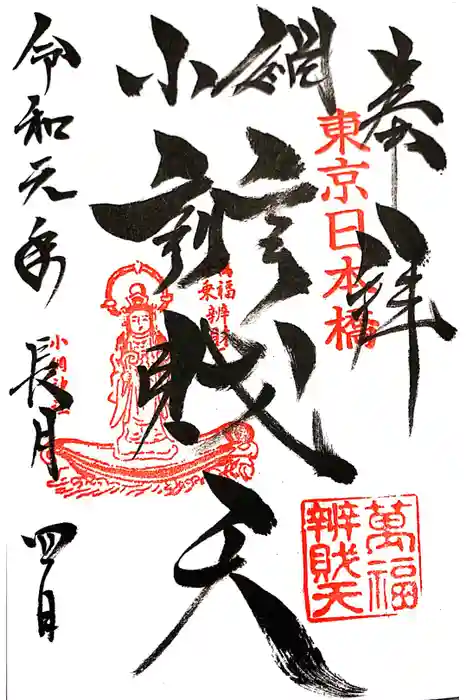 奉拝
東京日本橋
小網
辨財天
萬福
舟乗辨財天
小網神社
萬福
辨財天
令和元年 長月 四日